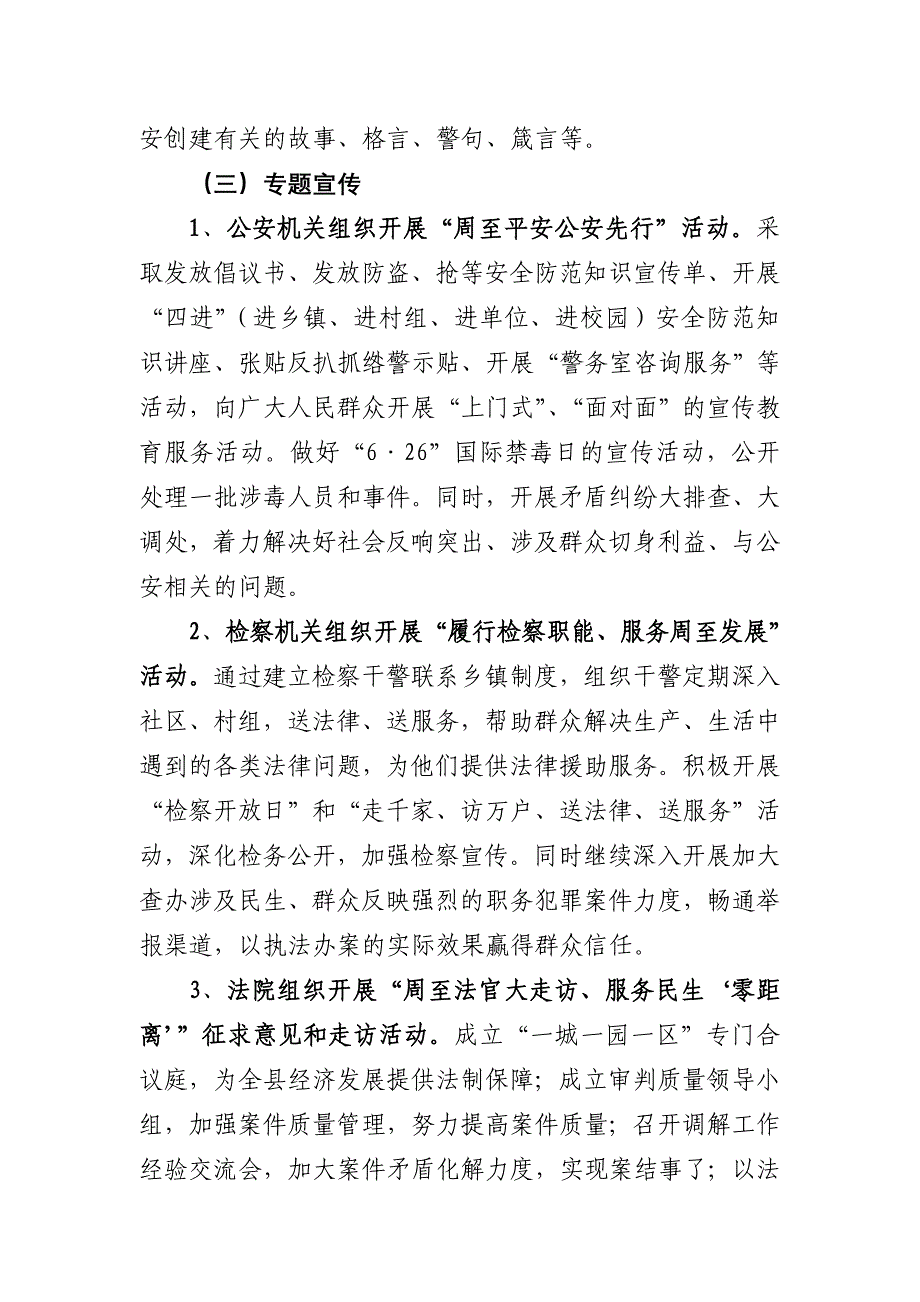 安创建有关的故事、格言、警句、箴言等。
（三）专题宣传
1、公安机关组织开展“周至平安公安先行”活动。采
取发放倡议书、发放防盗、抢等安全防范知识宣传单、开展
“四进”（进乡镇、进村组、进单位、进校园）安全防范知
识讲座、张贴反扒抓绺警示贴、开展“警务室咨询服务”等
活动，向广大人民群众开展“上门式”、“面对面”的宣传教
育服务活动。做好“6·26”国际禁毒日的宣传活动，公开
处理一批涉毒人员和事件。同时，开展矛盾纠纷大排查、大
调处，着力解决好社会反响突出、涉及群众切身利益、与公
安相关的问题。
2、检察机关组织开展“履行检察职能、服务周至发展”
活动。通过建立检察干警联系乡镇制度，组织干警定期深入
社区、村组，送法律、送服务，帮助群众解决生产、生活中
遇到的各类法律问题，为他们提供法律援助服务。积极开展
“检察开放日”和“走千家、访万户、送法律、送服务”活
动，深化检务公开，加强检察宣传。同时继续深入开展加大
查办涉及民生、群众反映强烈的职务犯罪案件力度，畅通举
报渠道，以执法办案的实际效果赢得群众信任。
3、法院组织开展“周至法官大走访、服务民生‘零距
离’”征求意见和走访活动。成立“一城一园一区”专门合
议庭，为全县经济发展提供法制保障；成立审判质量领导小
组，加强案件质量管理，努力提高案件质量；召开调解工作
经验交流会，加大案件矛盾化解力度，实现案结事了；以法